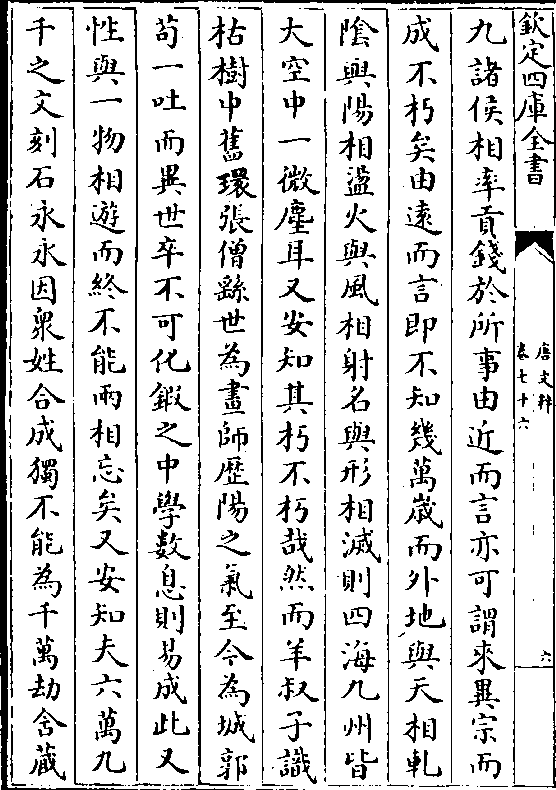 欽定四庫全書
唐文粹
卷七十六
六
九諸侯相率貢錢於所事由近而言亦可謂來異宗而
成不朽矣由遠而言即不知幾萬歲而外地與天相軋
陰與陽相盪火與風相射名與形相滅則四海九州皆
大空中一微塵耳又安知其朽不朽哉然而羊叔子識
枯樹中舊環張僧繇世為畫師歴陽之氣至今為城郭
苟一吐而異世卒不可化鍜之中學數息則易成此又
性與一物相遊而終不能兩相忘矣又安知夫六萬九
千之文刻石永永因衆姓合成獨不能為千萬劫含藏